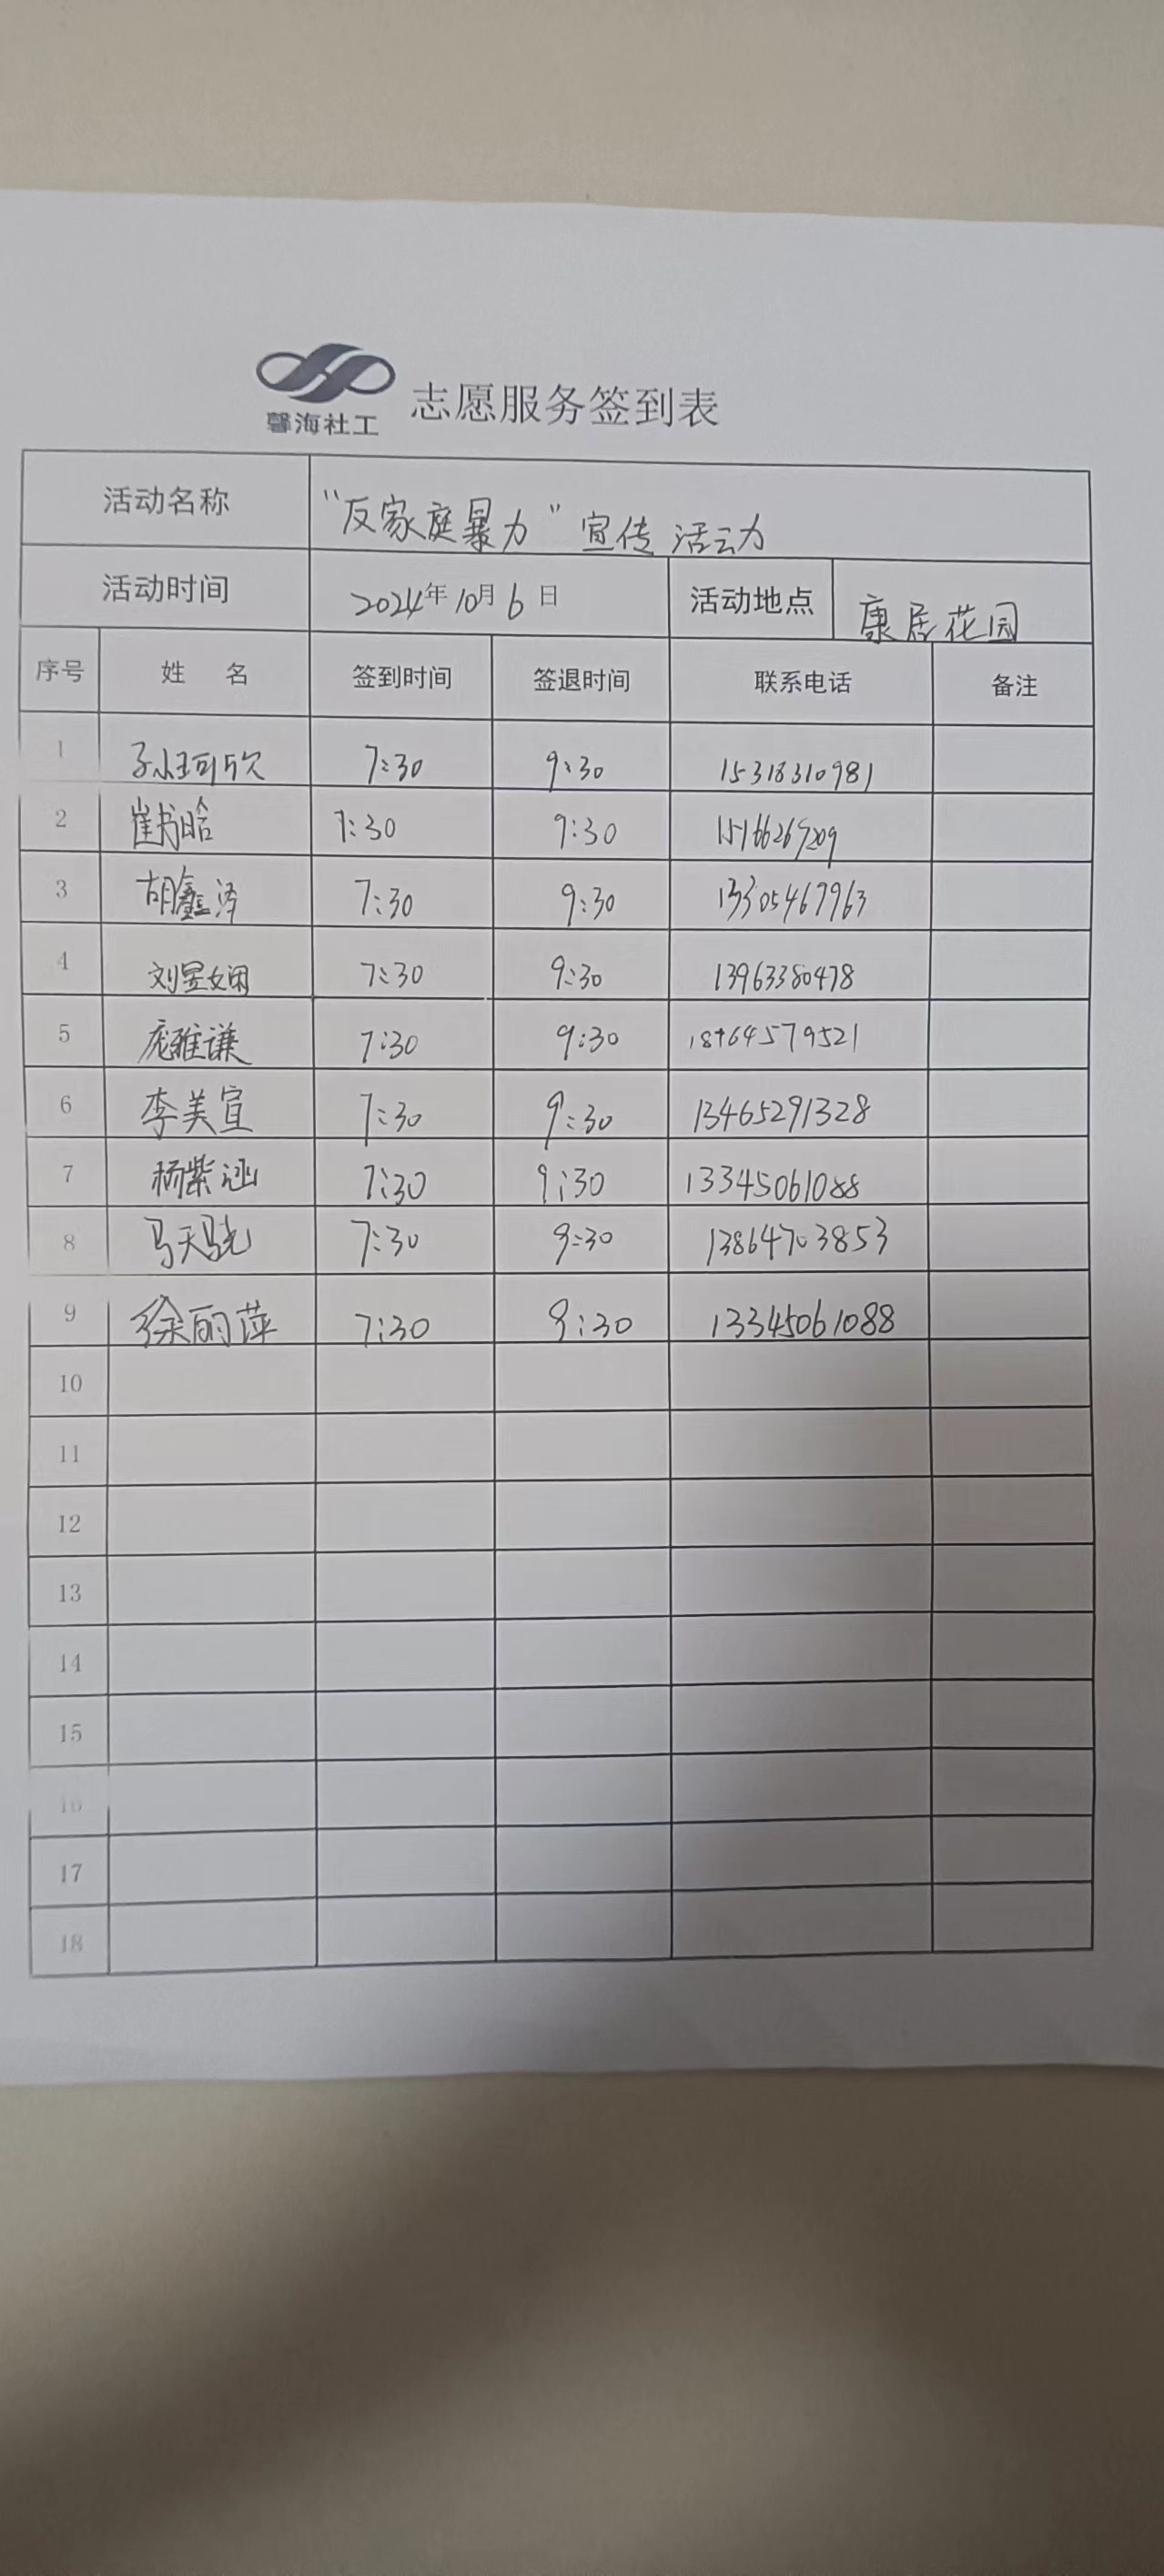 馨海社工
志愿服务签到表
活动名称 “反家庭暴力”宣传活动
活动时间 2024年10月6日 活动地点 康居花园
序号 姓 名 签到时间 签退时间 联系电话 备注
1 孙珂欣 7:30 9:30 15318310981
2 崔书晗 7:30 9:30
3 胡鑫泽 7:30 9:30 13305467963
4 刘昱娴 7:30 9:30 13963380478
5 庞雅谦 7:30 9:30
6 李美宣 7:30 9:30 13465291328
7 杨紫涵 7:30 9:30 13345061088
8 马天骁 7:30 9:30 13864703853
9 徐丽萍 7:30 9:30 13345061088
10
11
12
13
14
15
16
17
18